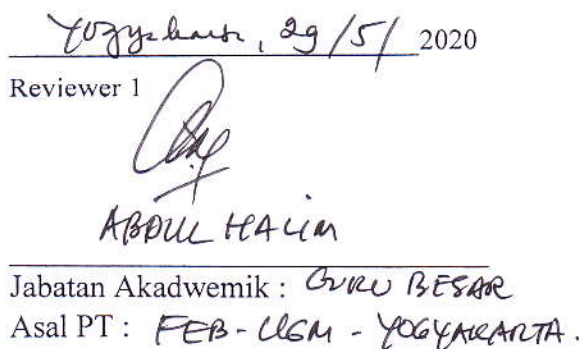 Yogyakarta, 29/5/ 2020
Reviewer 1
ABDUL HALIM
Jabatan Akadwemik : GURU BESAR
Asal PT : FEB-UGM - YOGYAKARTA.